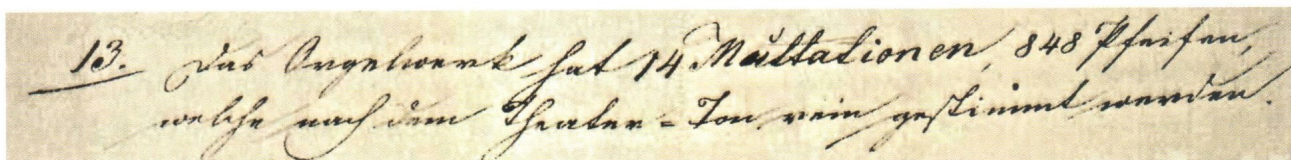 13. Das Orgelwerk hat 14 Muttationen, 848 Pfeifen,
welche nach dem Theater=Ton rein gestimmt werden.